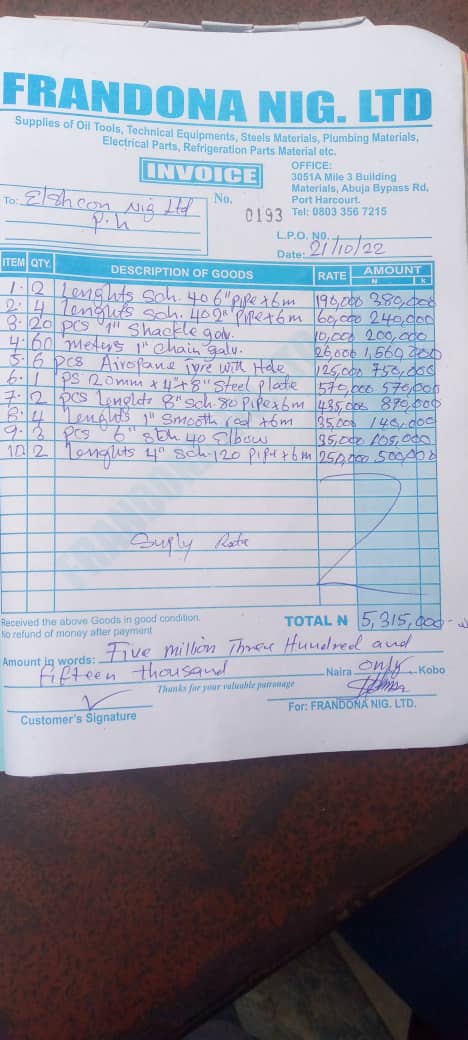 FRANDONA NIG. LTD
Supplies of Oil Tools, Technical Equipments, Steels Materials, Plumbing Materials,
Electrical Parts, Refrigeration Parts Material etc.
INVOICE
OFFICE:
3051A Mile 3 Building
Materials, Abuja Bypass Rd,
Port Harcourt.
Tel: 0803 356 7215
To: Elshcon Nig Ltd
P.H
No. 0193
L.P.O. NO.
Date: 21/10/22
ITEM QTY. DESCRIPTION OF GOODS RATE AMOUNT
N K
1. 2 Lenghts Sch. 40 6" pipe x 6m 190,000 380,000
2. 4 Lenghts Sch. 40 2" Pipe x 6m 60,000 240,000
3. 20 pcs 1" Shackle galv. 10,000 200,000
4. 60 meters 1" Chain galv. 26,000 1,560,000
5. 6 pcs Airopane tyre with Hole 125,000 750,000
6. 1 Ps 20mm x 4' x 8' Steel plate 570,000 570,000
7. 2 pcs Lenghts 8" Sch 80 Pipe x 6m 435,000 870,000
8. 4 Lenghts 1" Smooth rod x 6m 35,000 140,000
9. 3 pcs 6" Sch 40 Elbow 35,000 105,000
10. 2 Lenghts 4" Sch. 120 pipe x 6m 250,000 500,000
FRANDONA
Suply Rate
Received the above Goods in good condition.
No refund of money after payment
TOTAL N 5,315,000
Amount in words: Five million Three Hundred and
fifteen thousand Naira only Kobo
Thanks for your valuable patronage
Customer's Signature
For: FRANDONA NIG. LTD.